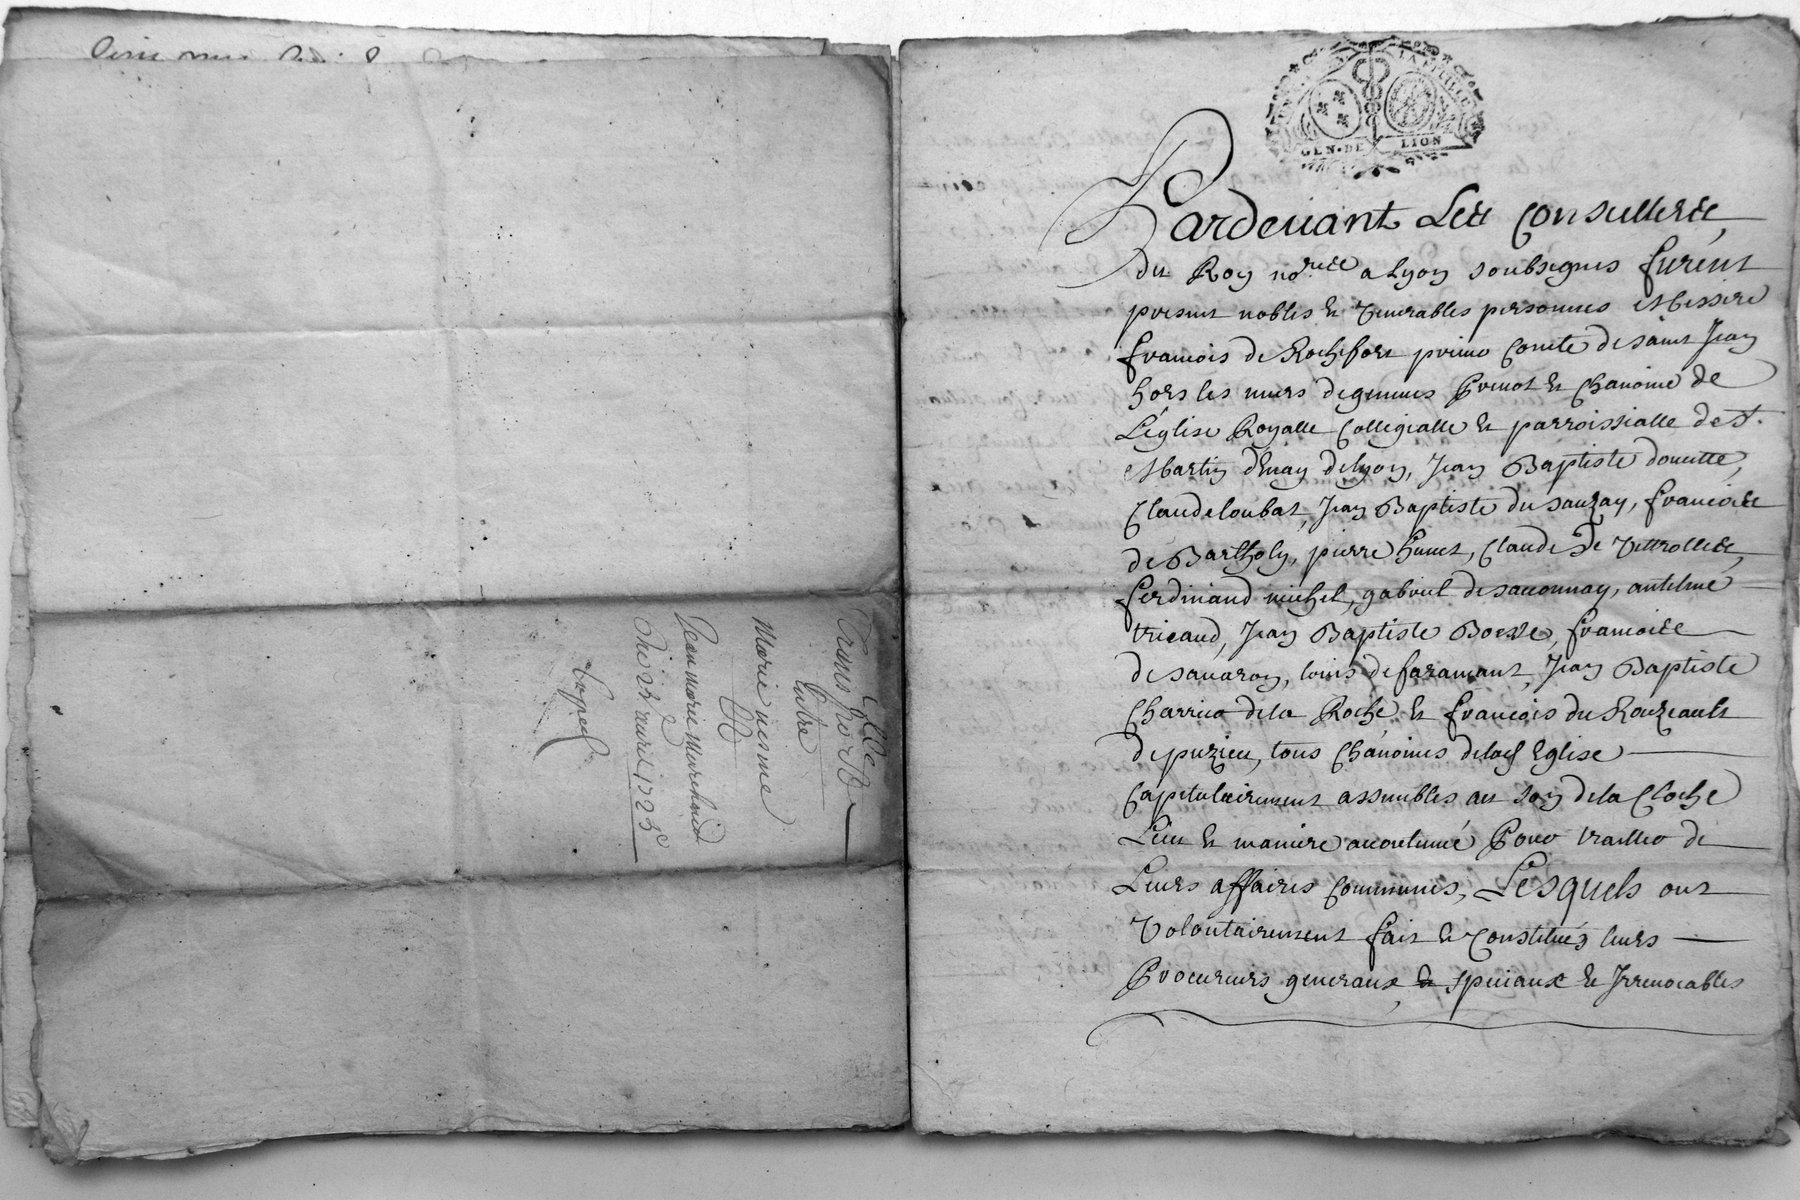 Transport
Entre
Marie
&
Jean Marie Marechand
Du 23 avril 1723
GEN·DE LION
Pardeuant Les Conseillers
du Roy no.res a Lyon soubsignes furent
presens nobles & venerables personnes Messire
francois de Rochefort prieur Comte de saint Jean
hors les murs de Preuot & Chanoine de
L'église Royalle Collegialle & parroissialle de St.
Martin d'Enay de Lyon, Jean Baptiste
Claude loubat, Jean Baptiste du sauzay, francois
de Bartholy, pierre Claude De
ferdinand michel, gabriel de saconnay, antelme
tricaud, Jean Baptiste francois
de sauaron, louis de faramant, Jean Baptiste
Charrier de la Roche & francois du Rouzeault
de puzieu, tous Chanoines de lad Eglise
Capitulairement assembles au son de la Cloche
Lieu & maniere accoutumé Pour trailler de
Leurs affaires Communes, Lesquels ont
Volontairement fait & Constitués leurs
Procureurs generaux & speciaux & Irreuocables